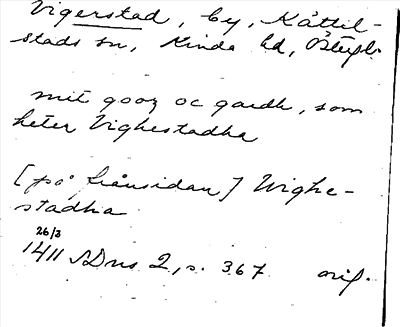 Vigerstad, by, Kättil-
stads sn, Kinda hd, Östergl.
mit gooz oc gardh, som
heter Vighestadha
[på frånsidan] Wighe-
stadha
26/3
1411 SDns 2, s. 367 orig.